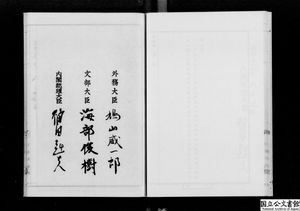 外務大臣 鳩山威一郎
文部大臣 海部俊樹
内閣総理大臣 福田赳夫
国立公文書館
National Archives of Japan